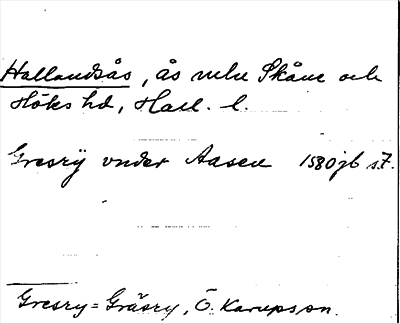 Hallandsås, ås mellan Skåne och
Höks hd, Hall. l.
Gresrÿ vnder Aasen 1580 jb s. 7.
Gresry = Gräsry, Ö. Karups sn.